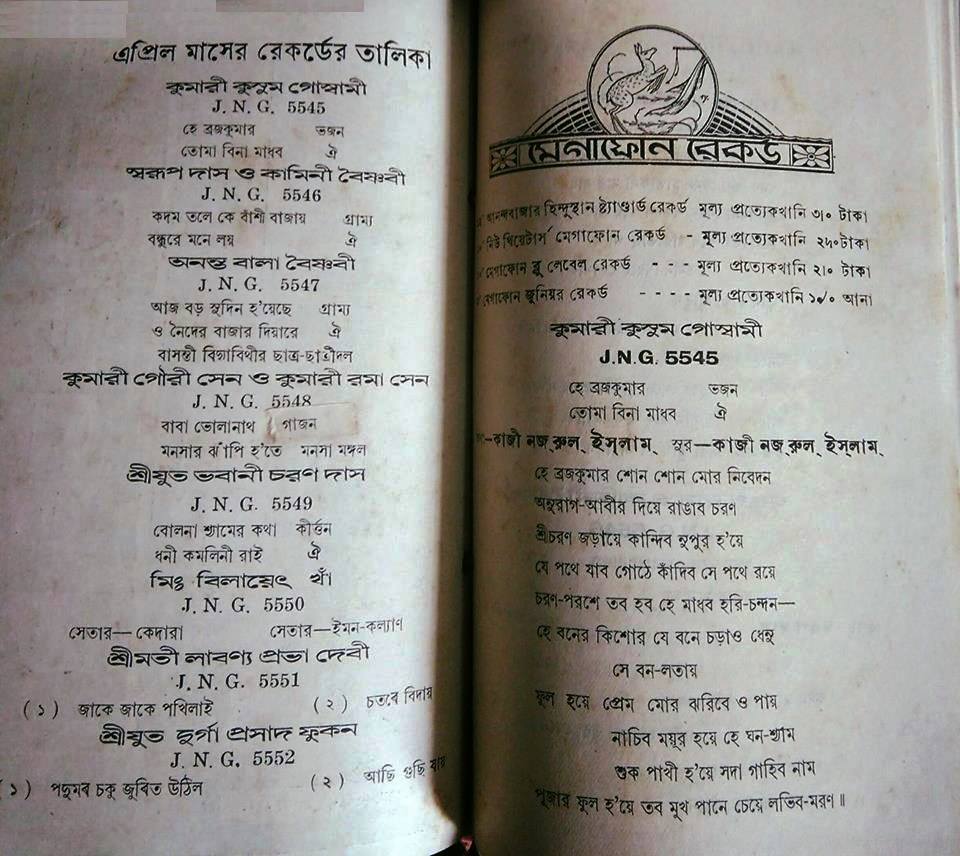 এপ্রিল মাসের রেকর্ডের তালিকা
কুমারী কুসুম গোস্বামী
J. N. G. 5545
হে ব্রজকুমার ভজন
তোমা বিনা মাধব ঐ
স্বরূপ দাস ও কামিনী বৈষ্ণবী
J. N. G. 5546
কদম তলে কে বাঁশী বাজায় গ্রাম্য
বন্ধুরে মনে লয় ঐ
অনন্ত বালা বৈষ্ণবী
J. N. G. 5547
আজ বড় সুদিন হ'য়েছে গ্রাম্য
ও নৈদের বাজার দিয়ারে ঐ
বাসন্তী বিদ্যাবিথীর ছাত্র-ছাত্রীদল
কুমারী গৌরী সেন ও কুমারী রমা সেন
J. N. G. 5548
বাবা ভোলানাথ গাজন
মনসার ঝাঁপি হ'তে মনসা মঙ্গল
শ্রীযুত ভবানী চরণ দাস
J. N. G. 5549
বোলনা শ্যামের কথা কীর্ত্তন
ধনী কমলিনী রাই ঐ
মিঃ বিলায়েৎ খাঁ
J. N. G. 5550
সেতার—কেদারা সেতার—ইমন-কল্যাণ
শ্রীমতী লাবণ্য প্রভা দেবী
J. N. G. 5551
( ১ ) জাকে জাকে পখিলাই ( ২ ) চতৰে বিদায়
শ্রীযুত দুর্গা প্রসাদ ফুকন
J. N. G. 5552
১ ) পদুমৰ চকু জুৰিত উঠিল ( ২ ) আছি গুছি
মেগাফোন রেকর্ড
আনন্দবাজার হিন্দুস্থান ষ্ট্যাণ্ডার্ড রেকর্ড মূল্য প্রত্যেকখানি ৩৷০ টাকা
নিউ থিয়েটার্স মেগাফোন রেকর্ড - মূল্য প্রত্যেকখানি ২৸০ টাকা
মেগাফোন ব্লু লেবেল রেকর্ড - - - মূল্য প্রত্যেকখানি ২৷০ টাকা
মেগাফোন জুনিয়র রেকর্ড - - - - মূল্য প্রত্যেকখানি আনা
কুমারী কুসুম গোস্বামী
J.N.G. 5545
হে ব্রজকুমার ভজন
তোমা বিনা মাধব ঐ
—কাজী নজ্‌রুল্‌ ইস্‌লাম্‌ সুর—কাজী নজ্‌রুল্‌ ইস্‌লাম্‌
হে ব্রজকুমার শোন শোন মোর নিবেদন
অনুরাগ-আবীর দিয়ে রাঙাব চরণ
শ্রীচরণ জড়ায়ে কান্দিব নুপুর হ'য়ে
যে পথে যাব গোঠে কাঁদিব সে পথে রয়ে
চরণ-পরশে তব হব হে মাধব হরি-চন্দন—
হে বনের কিশোর যে বনে চড়াও ধেনু
সে বন-লতায়
ফুল হয়ে প্রেম মোর ঝরিবে ও পায়
নাচিব ময়ূর হয়ে হে ঘন-শ্যাম
শুক পাখী হ'য়ে সদা গাহিব নাম
পূজার ফুল হ'য়ে তব মুখ পানে চেয়ে লভিব-মরণ॥